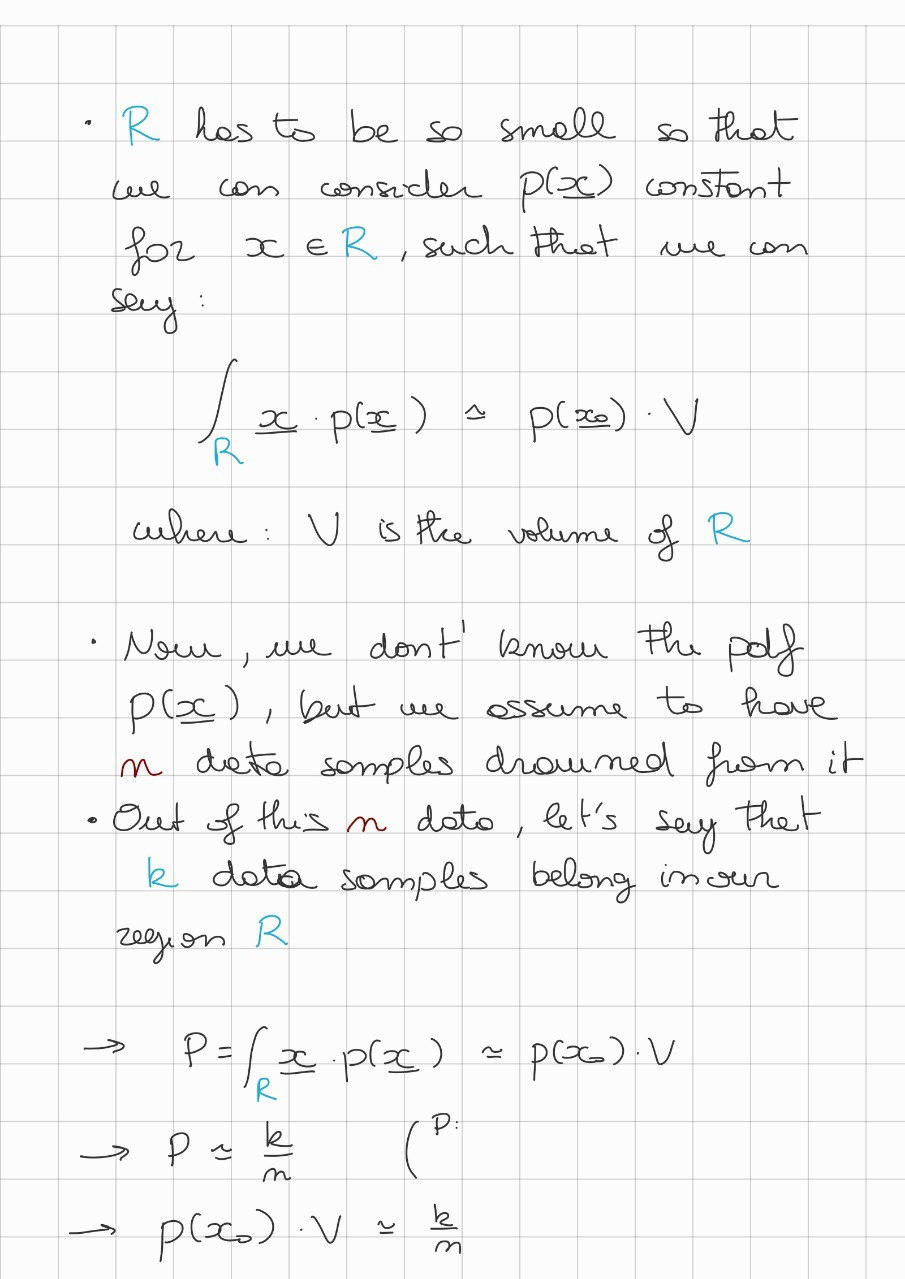 • R has to be so small so that
we can consider p(x) constant
for x ∈ R, such that we can
say:
∫_R x · p(x) ≃ p(x₀) · V
where: V is the volume of R
• Now, we dont' know the pdf
p(x), but we assume to have
n data samples drawned from it
• Out of this n data, let's say that
k data samples belong in our
region R
→ P = ∫_R x · p(x) ≃ p(x₀) · V
→ P ≃ k/n ( P:
→ p(x₀) · V ≃ k/n